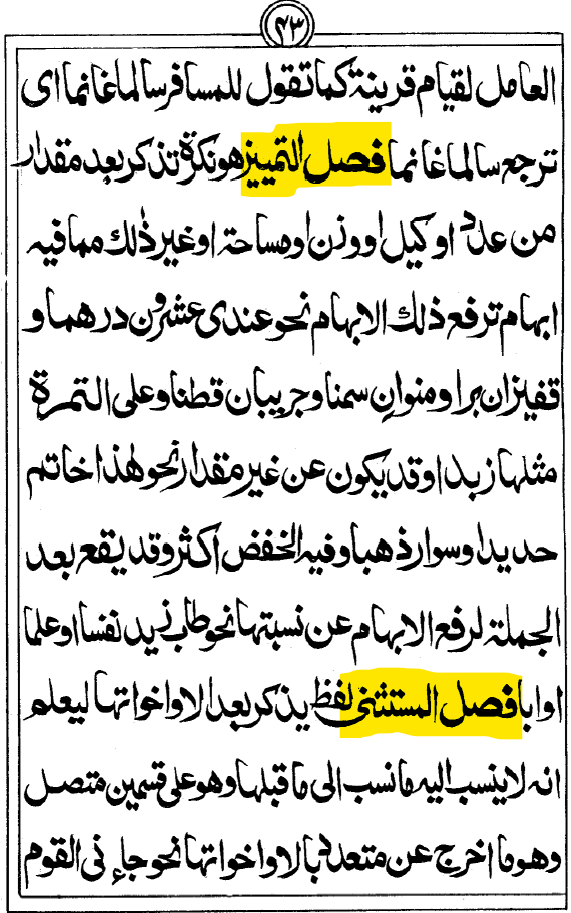 ٤٣
العامل لقيام قرينة كما تقول للمسافر سالما غانما اى
ترجع سالما غانما فصل التمييز هو نكرة تذكر بعد مقدار
من عدد او كيل او وزن او مساحة او غير ذٰلك مما فيه
ابهام ترفع ذلك الابهام نحو عندى عشرون درهما و
قفيزان برا و منوانِ سمنا و جريبان قطنا و على التمرة
مثلها زبدا و قد يكون عن غير مقدار نحو هٰذا خاتم
حديدا و سوار ذهبا و فيه الخفض اكثر و قد يقع بعد
الجملة لرفع الابهام عن نسبتها نحو طاب زيد نفسا او علما
او ابا فصل المستثنى لفظ يذكر بعد الا و اخواتها ليعلم
انه لا ينسب اليه ما نسب الى ما قبلها و هو على قسمين متصل
و هو ما اخرج عن متعدد بالا و اخواتها نحو جاءنى القوم